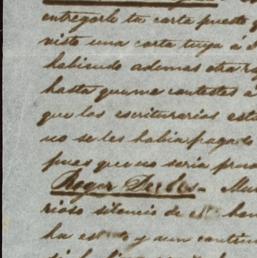 entregarle la carta puesto q
visto una carta tuya á d
habiendo ademas otra ra
hasta que me contestes á
que los escriturarios esta
no se les habia pagado
pues que no seria proce
Roger De
rioso silencio de el
ha es y aun contin